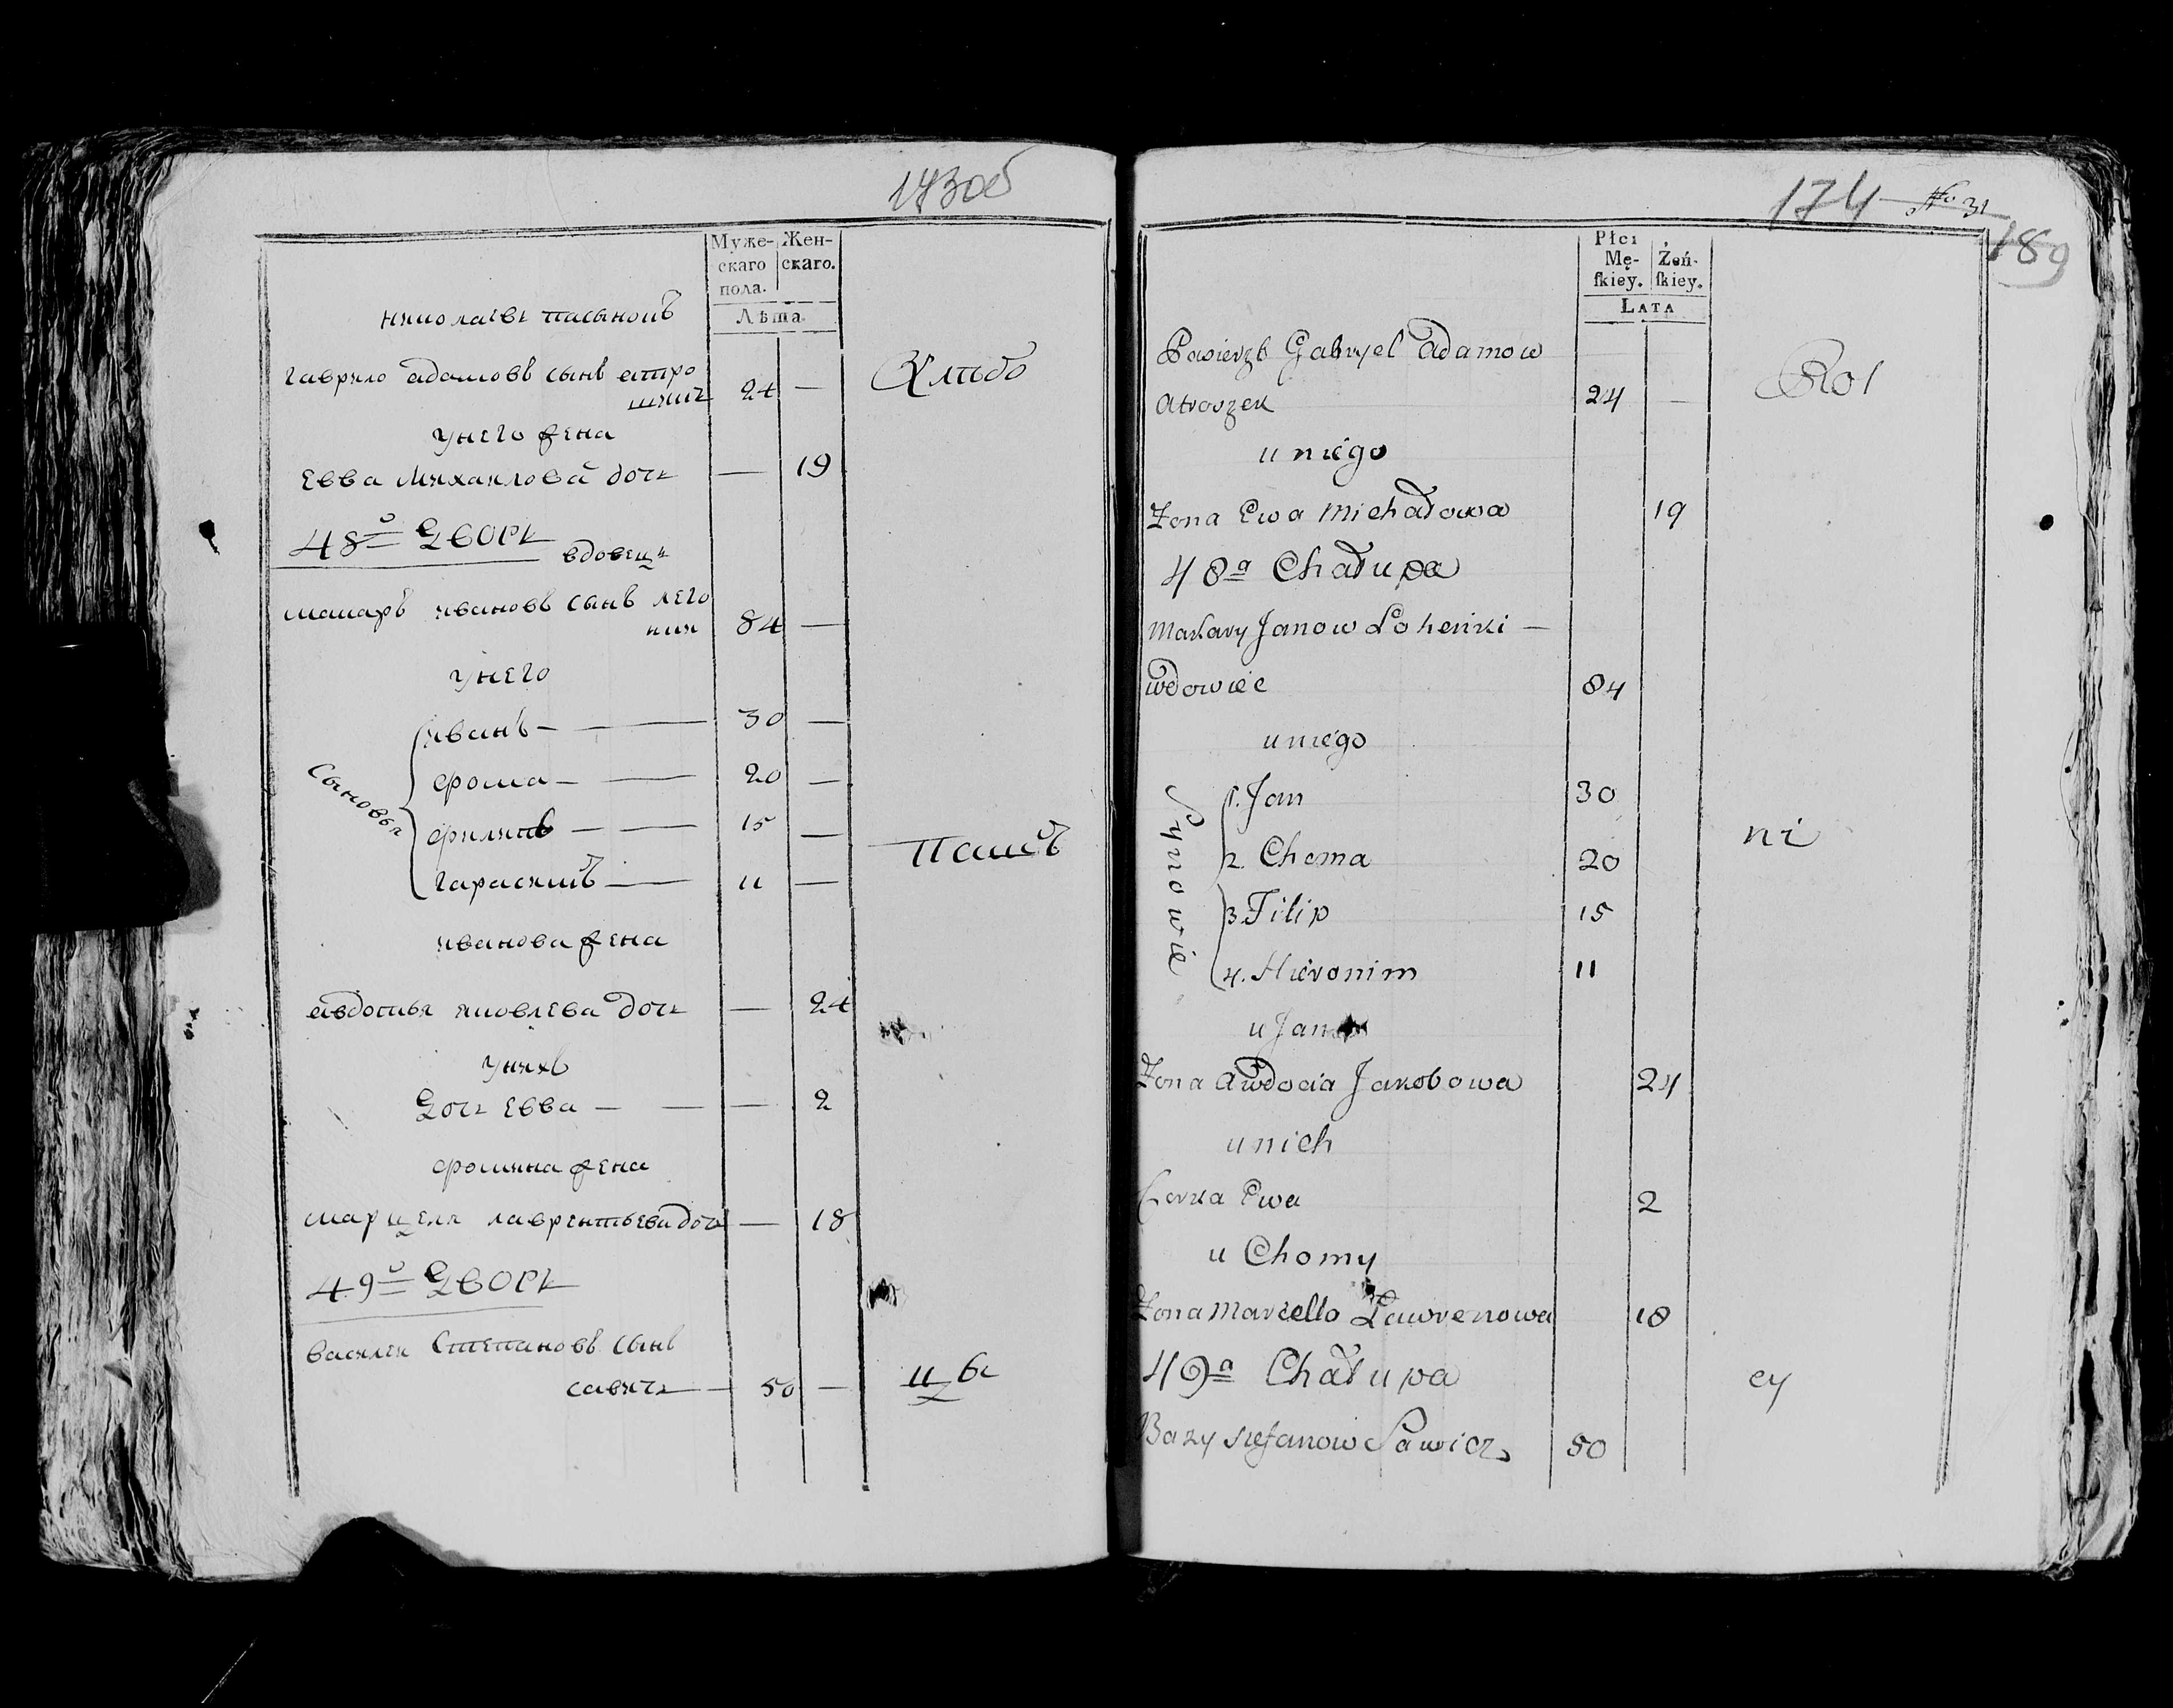 173об
Муже-
скаго
пола.
Жен-
скаго.
Лѣта
николаевъ пасынокъ
гаврило адамовъ сынъ атро
шикъ 24 —
Хлѣбо
унего жена
Евва Михаилова дочь — 19
48й Дворъ
вдовецъ
макаръ ивановъ сынъ лего
нки 84 —
унего
Сыновья
иванъ — 30 —
фома — 20 —
филипъ — 15 —
гарасимъ — 11 —
Пашъ
иванова жена
авдотья яковлева дочь — 24
унихъ
Дочь Евва — — 2
фомина жена
марцеля лаврентьева дочь — 18
49й Дворъ
василеи Степановъ сынъ
савичь — 50 —
цы
174 No 31
189
Płci
Mę-
ſkiey.
Żeń-
ſkiey.
Lata
Pasierzb Gabryel Adamow
Atroszek 24 —
Rol
u niego
Żona Ewa Michałowa 19
48a Chałupa
Makary Janow Lohenki —
wdowiec 84
u niego
Synowie
1. Jan 30
2. Choma 20
3. Filip 15
4. Hieronim 11
ni
u Jana
Żona Awdocia Jakobowa 24
u nich
Corka Ewa 2
u Chomy
Żona Marcella Lawrenowa 18
49a Chałupa
cy
Bazy Stefanow Sawicz 50